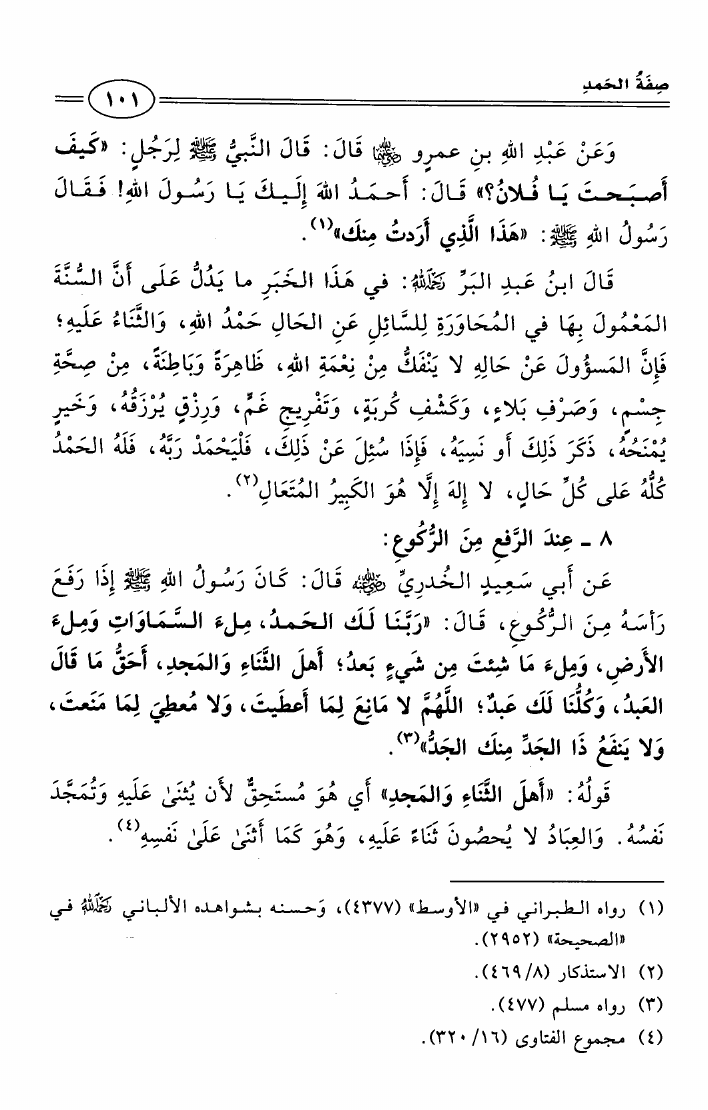 صِفَةُ الحَمدِ
١٠١
وَعَنْ عَبْدِ اللهِ بنِ عمرٍو رضي الله عنهما قَالَ: قَالَ النَّبيُّ ﷺ لِرَجُلٍ: «كَيفَ
أَصبَحتَ يَا فُلَانُ؟» قَالَ: أَحمَدُ اللهَ إِلَيكَ يَا رَسُولَ اللهِ! فَقَالَ
رَسُولُ اللهِ ﷺ: «هَذَا الَّذِي أَرَدتُ مِنكَ»(١).
قَالَ ابنُ عَبدِ البَرِّ رحمه الله: في هَذَا الخَبَرِ ما يَدُلُّ عَلَى أَنَّ السُّنَّةَ
المَعْمُولَ بِهَا في المُحَاوَرَةِ لِلسَّائِلِ عَنِ الحَالِ حَمْدُ اللهِ، وَالثَّنَاءُ عَلَيهِ؛
فَإِنَّ المَسؤُولَ عَنْ حَالِهِ لا يَنْفَكُّ مِنْ نِعْمَةِ اللهِ، ظَاهِرَةً وَبَاطِنَةً، مِنْ صِحَّةِ
جِسْمٍ، وَصَرْفِ بَلاءٍ، وَكَشْفِ كُربَةٍ، وَتَفْرِيجِ غَمٍّ، وَرِزْقٍ يُرْزَقُهُ، وَخَيرٍ
يُمْنَحُهُ، ذَكَرَ ذَلِكَ أو نَسِيَهُ، فَإِذَا سُئِلَ عَنْ ذَلِكَ، فَلْيَحْمَدْ رَبَّهُ، فَلَهُ الحَمْدُ
كُلُّهُ عَلى كُلِّ حَالٍ، لا إِلهَ إِلَّا هُوَ الكَبِيرُ المُتَعَالِ(٢).
٨ ـ عِندَ الرَّفعِ مِنَ الرُّكُوعِ:
عَن أَبي سَعِيدٍ الخُدرِيِّ رضي الله عنه قَالَ: كَانَ رَسُولُ اللهِ ﷺ إِذَا رَفَعَ
رَأسَهُ مِنَ الرُّكُوعِ، قَالَ: «رَبَّنَا لَكَ الحَمدُ، مِلءَ السَّمَاوَاتِ وَمِلءَ
الأَرضِ، وَمِلءَ مَا شِئتَ مِن شَيءٍ بَعدُ؛ أَهلَ الثَّنَاءِ وَالمَجدِ، أَحَقُّ مَا قَالَ
العَبدُ، وَكُلُّنَا لَكَ عَبدٌ؛ اللَّهُمَّ لا مَانِعَ لِمَا أَعطَيتَ، وَلا مُعطِيَ لِمَا مَنَعتَ،
وَلا يَنفَعُ ذَا الجَدِّ مِنكَ الجَدُّ»(٣).
قَولُهُ: «أَهلَ الثَّنَاءِ وَالمَجدِ» أَي هُوَ مُستَحِقٌّ لأَن يُثنَىٰ عَلَيهِ وَتُمَجَّدَ
نَفسُهُ. وَالعِبَادُ لا يُحصُونَ ثَنَاءً عَلَيهِ، وَهُوَ كَمَا أَثنَىٰ عَلَىٰ نَفسِهِ(٤).
(١) رواه الطبراني في «الأوسط» (٤٣٧٧)، وَحسنه بشواهده الألباني رحمه الله في
«الصحيحة» (٢٩٥٢).
(٢) الاستذكار (٤٦٩/٨).
(٣) رواه مسلم (٤٧٧).
(٤) مجموع الفتاوى (٣٢٠/١٦).